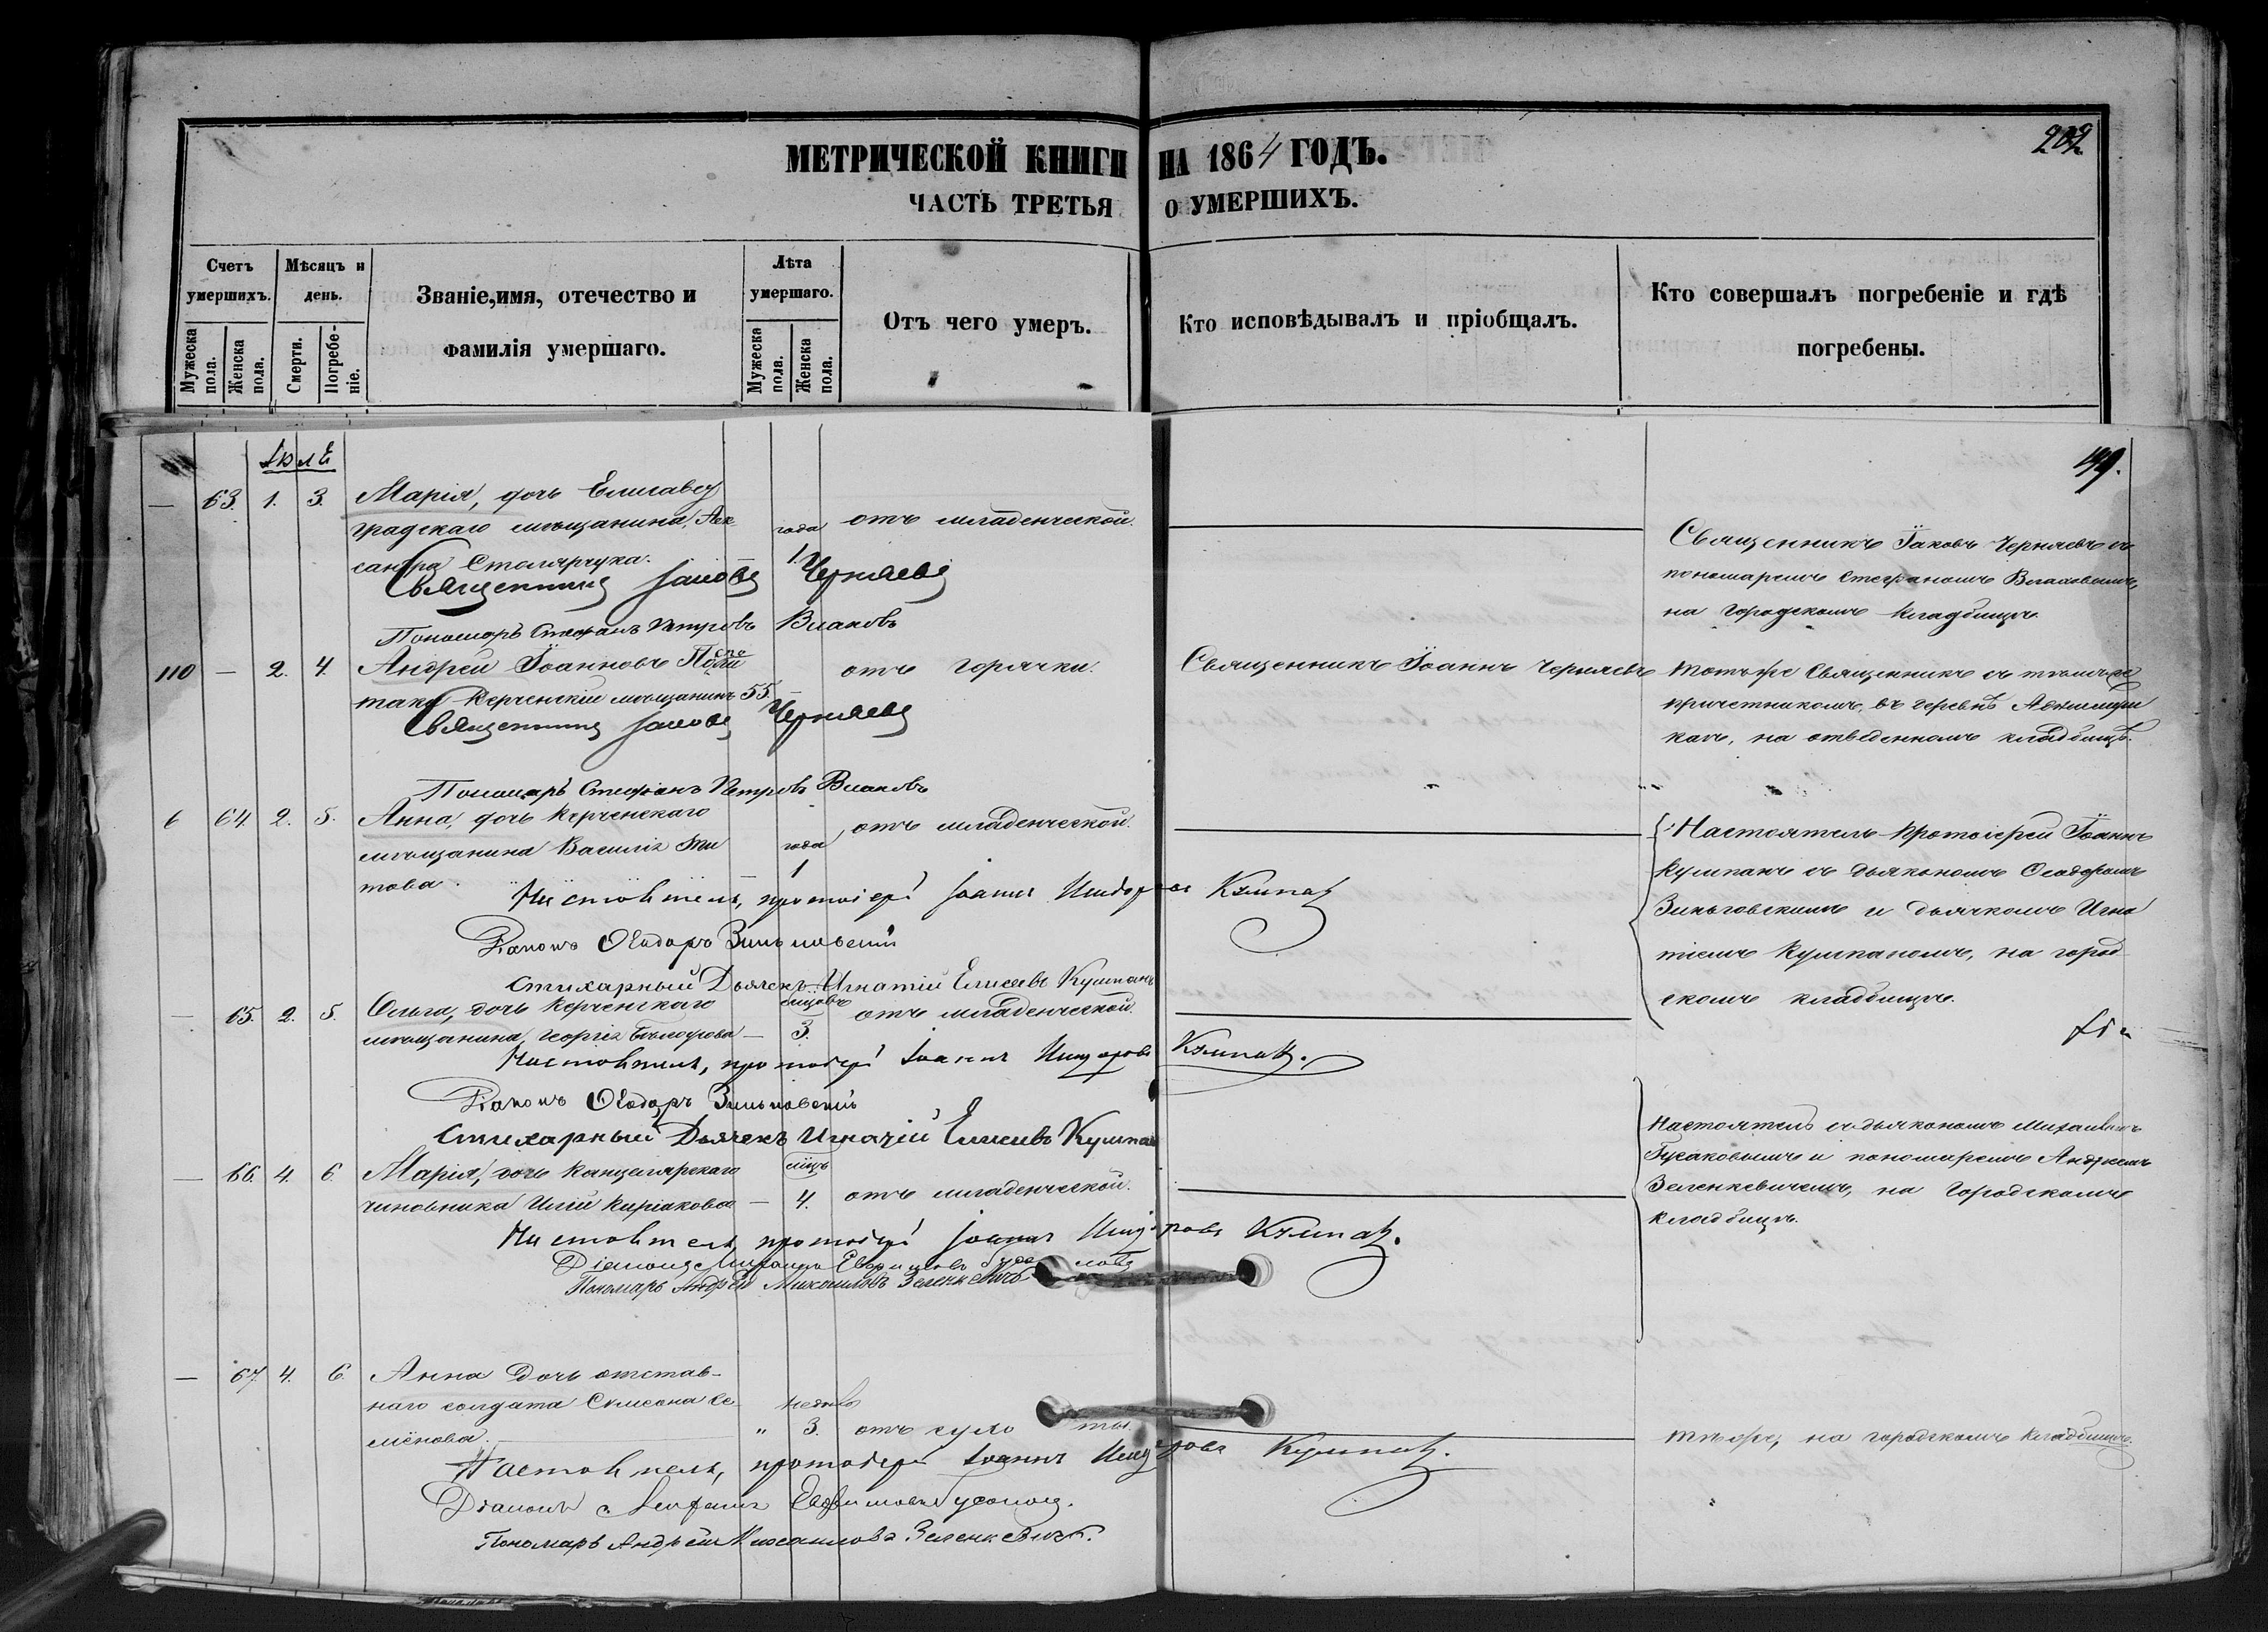 МЕТРИЧЕСКОЙ КНИГИ НА 1864 ГОДЪ.
202
ЧАСТЬ ТРЕТЬЯ О УМЕРШИХЪ.
Счетъ умершихъ.
Мужеска пола.
Женска пола.
Мѣсяцъ и день.
Смерти.
Погребеніе.
Званіе,имя, отечество и
фамилія умершаго.
Лѣта умершаго.
Мужеска пола.
Женска пола.
Отъ чего умеръ.
Кто исповѣдывалъ и пріобщалъ.
Кто совершалъ погребеніе и гдѣ
погребены.
— 63. 1. 3. Марія, дочь Елисавет
градскаго мѣщанина, Алек
сандра Столярчука.
года 1. отъ младенческой.
Священникъ Іаковъ Черняевъ съ
пономаремъ Стефаномъ Влаховымъ,
на городскомъ кладбищѣ.
Священникъ Іаковъ Черняевъ
Пономарь Стефанъ Петровъ Влаховъ
110 — 2. 4. Андрей Іоанновъ
Керченскій мѣщанинъ 55. —
отъ горячки.
Священникъ Іоаннъ Черняевъ
Тотъже Священникъ съ тѣмъже
причетникомъ, въ деревнѣ Аджимуш
каѣ, на отведенномъ кладбищѣ.
Священникъ Іаковъ Черняевъ
Пономарь Стефанъ Петровъ Влаховъ
6 64. 2. 5. Анна, дочь Керченскаго
мѣщанина Василія Ти
това.
года 1 отъ младенческой.
Настоятель Протоіерей Іоаннъ
Кумпанъ съ Дьякономъ Ѳеодоромъ
Зиньковскимъ и дьячкомъ Игна
тіемъ Кумпаномъ, на город
скомъ кладбищѣ.
Настоятель, протоіерей Іоаннъ Исидоровъ Кумпанъ
Діаконъ Ѳеодоръ Зиньковскій
Стихарный Дьячекъ Игнатій Елисеевъ Кумпанъ
— 65. 2. 5. Ольга, дочь Керченскаго
мѣщанина, Георгія
— 3. отъ младенческой.
Настоятель, протоіерей Іоаннъ Исидоровъ Кумпанъ.
Діаконъ Ѳеодоръ Зиньковскій
Стихарный Дьячекъ Игнатій Елисеевъ Кумпанъ
— 66. 4. 6. Марія, дочь Канцелярскаго
чиновника Иліи Киріакова
— 4. отъ младенческой.
Настоятель съ дьякономъ Михаиломъ
Гусаковымъ и пономаремъ Андреемъ
Зеленкевичемъ, на Городскомъ
кладбищѣ.
Настоятель, протоіерей Іоаннъ Исидоровъ Кумпанъ.
Діаконъ Михаилъ Евфимовъ Гусаковъ
Пономарь Андрей Михайловъ Зеленкевичъ
— 67. 4. 6. Анна дочь отстав-
наго солдата Симеона Се
мёнова.
недѣль
" 3. отъ сухоты.
тѣже, на городскомъ кладбищѣ.
Настоятель, протоіерей Іоаннъ Исидоровъ Кумпанъ.
Діаконъ Михаилъ Евфимовъ Гусаковъ.
Пономарь Андрей Михайловъ Зеленкевичъ.